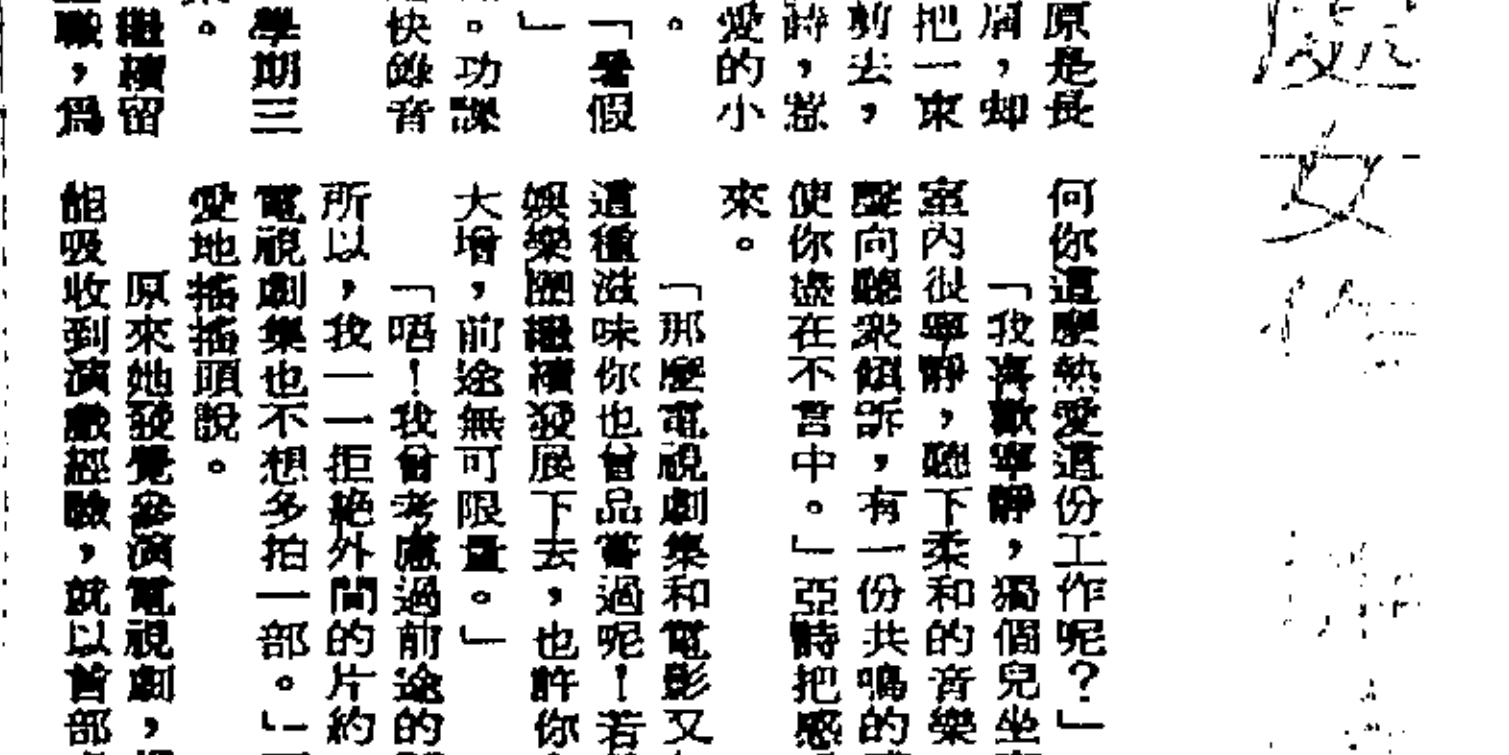 處女作
原是長
眉，却
把一束
剪去，
時，惹
愛的小
。
「暑假
」
。功課
快錄音
學期三
。
繼續留
職，爲
何你這麼熱愛這份工作呢？」
「我喜歡寧靜，獨個兒坐
室內很寧靜，聽下柔和的音樂
聲向聽衆傾訴，有一份共鳴的
使你處在不言中。」亞詩把感
來。
「那麼電視劇集和電影又
這種滋味你也曾品嘗過呢！若
娛樂圈繼續發展下去，也許你
大增，前途無可限量。」
「唔！我曾考慮過前途的
所以，我一一拒絶外間的片約
電視劇集也不想多拍一部。」
愛地搖搖頭說。
原來她發覺參演電視劇，
能吸收到演戲經驗，就以首部